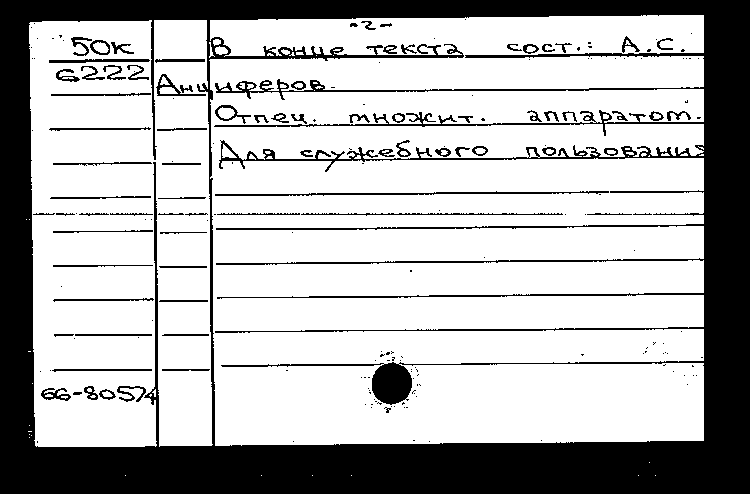 -2-
50к В конце текста сост.: А.С.
6222 Анциферов.
Отпеч. множит. аппаратом.
Для служебного пользования
66-80574